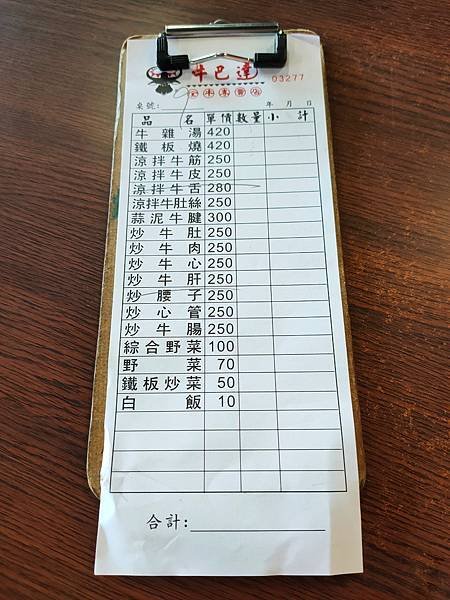 牛巴達
全牛專賣店
03277
桌號: 9 年 月 日
品 名 單價 數量 小 計
牛雜湯 420
鐵板燒 420
涼拌牛筋 250
涼拌牛皮 250
涼拌牛舌 280
涼拌牛肚絲 250
蒜泥牛腱 300
炒牛肚 250
炒牛肉 250
炒牛心 250
炒牛肝 250
炒腰子 250
炒心管 250
炒牛腸 250
綜合野菜 100
野菜 70
鐵板炒菜 50
白飯 10
合計: